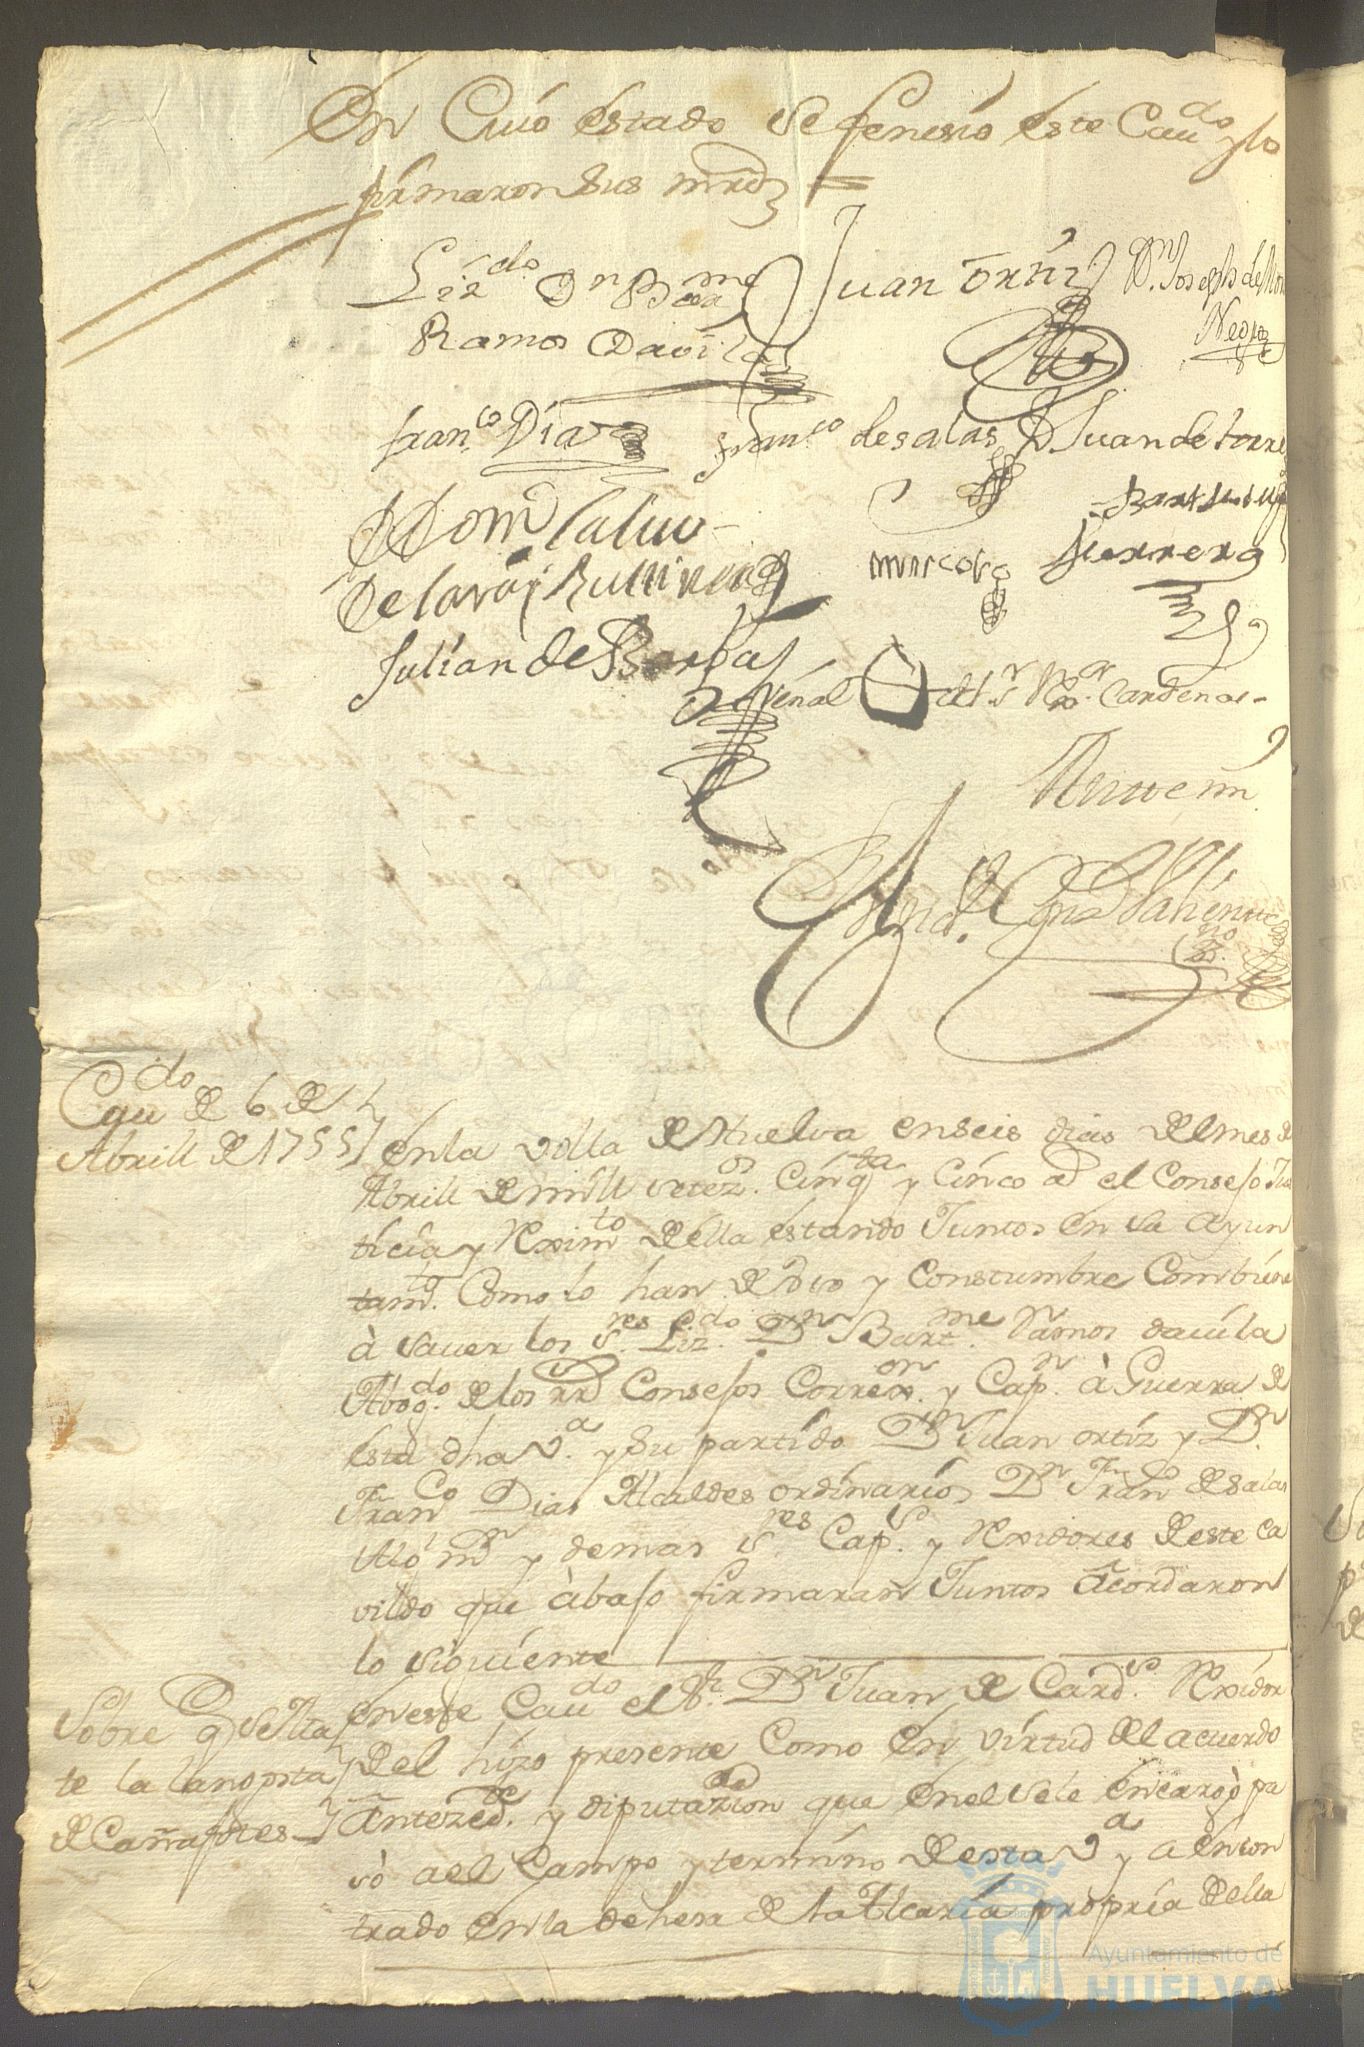 En Cuio estado se fenesio este Cavdo y lo
firmaron sus mrds =
Lizdo Dn Bme
Ramos Davila
Juan Ortiz
Dn. Joseph de Mon
Negro
Franco Dias
Franco de salas
D Juan de torres
D Dom
De la
Bart
Herrera
Julian de Barbas
Señal del sr Rxor Cardenas
Antte mi
Cavdo de 6 de
Abrill de 1755
en la villa de Huelva en seis dias del mes de
Abrill de mill setezos. Cinqta y Cinco as el Consejo Jus
ticia y Reximto della estando Juntos en su ayun
tamto. Como lo han de uso y Constumbre Combiene
à saver los sres. Lizdo. Dn Bartme Ramos davila
Abogdo. de los rrs Consejos Correxor. y Capn. à Guerra de
esta dha va. y su partido Dn Juan ortiz y Dn.
Franco Dias Alcaldes ordinarios Dn Franco de salas
y demas sres Caps. y Rexidores de este ca
vildo que àbajo firmaran Juntos acordaron
lo siguiente
Sobre q se
te la langosta
de Cañafotes
en este Cavdo el sr. Dn Juan de Cards. Rexidor
del hizo presente Como en virtud del acuerdo
antezedte. y diputazion que en el se le encargò pa
sò a el Campo y termino de esta va y a encon
trado en la dehesa de la Alcaria propria della
Ayuntamiento de
HUELVA